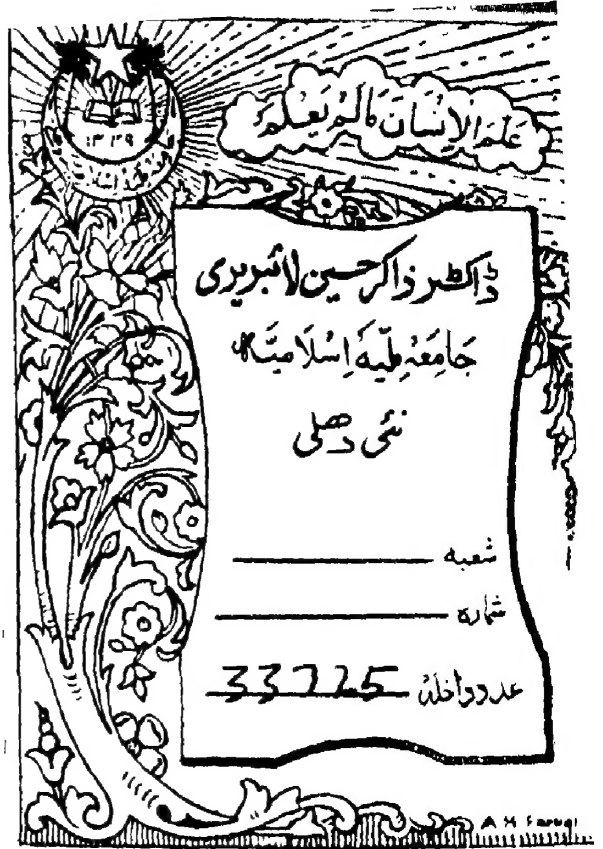 ۱۳۳۹
عَلَّمَ الْاِنْسَانَ مَالَمْ يَعْلَمْ
ڈاکٹر ذاکر حسین لائبریری
جَامِعَہ مِلّیَہ اِسْلَامِیَّہ
نئی دھلی
شعبہ
شمارہ
عدد داخلہ 33725
A H Faruqi